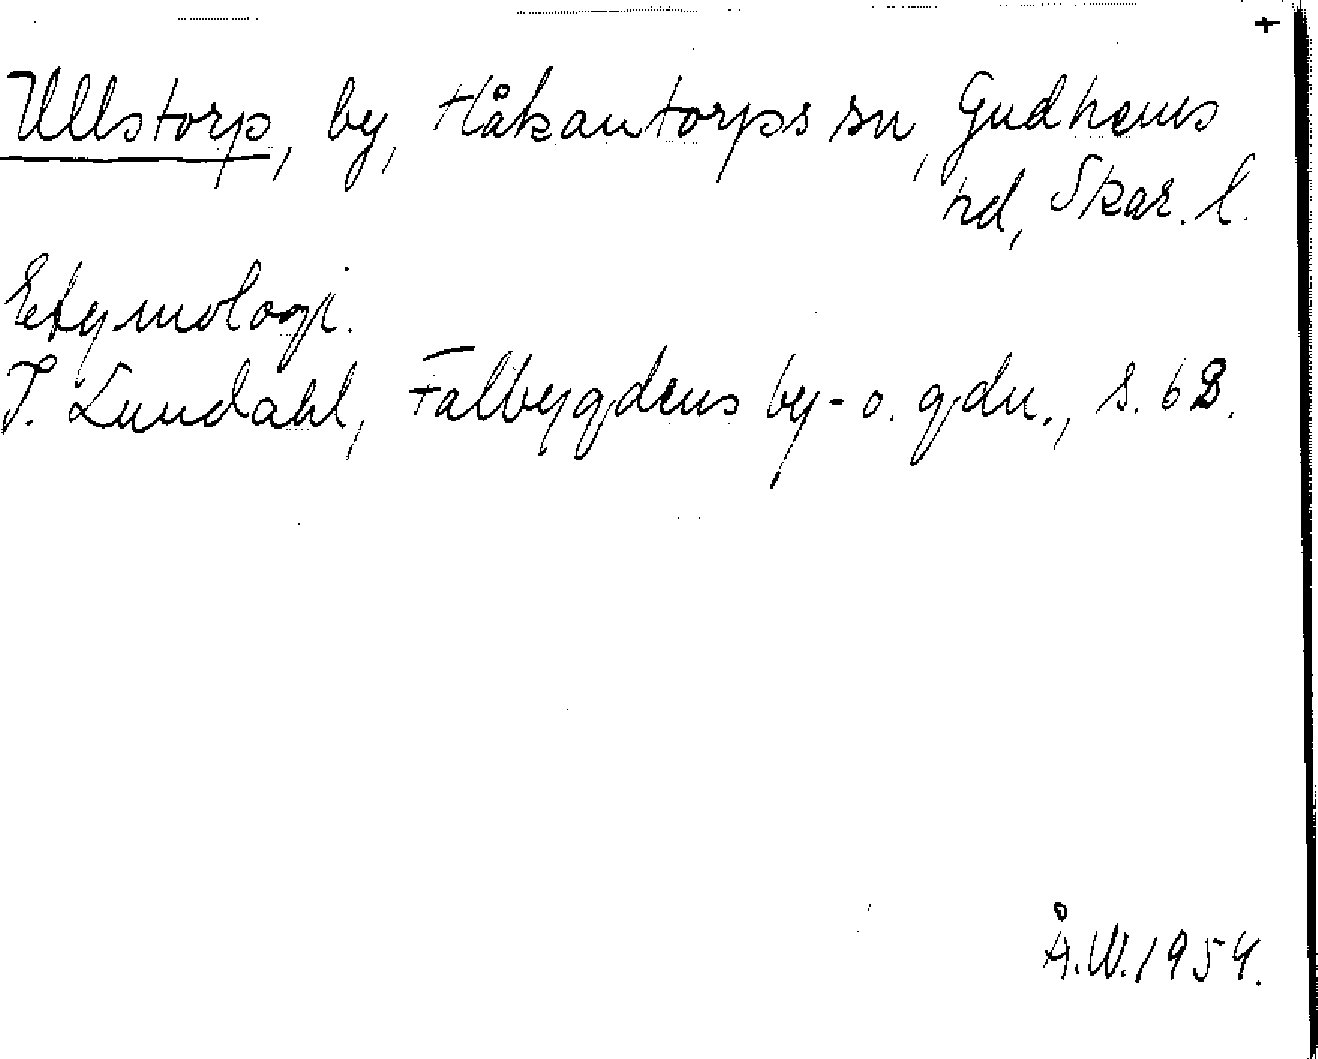 +
Ullstorp, by, Håkantorps sn, Gudhems
hd, Skar. l.
Etymologi.
I. Lundahl, Falbygdens by- o. gdn., s. 62.
Å.W. 1954.